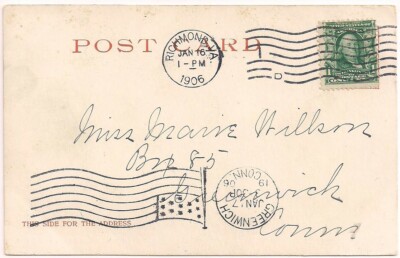 POST CARD
RICHMOND, VA.
JAN 16
1-PM
1906
D
Miss Marie Willson
Box 85
Greenwich
Conn
GREENWICH
CONN.
JAN 17
30P
19 06
THIS SIDE FOR THE ADDRESS